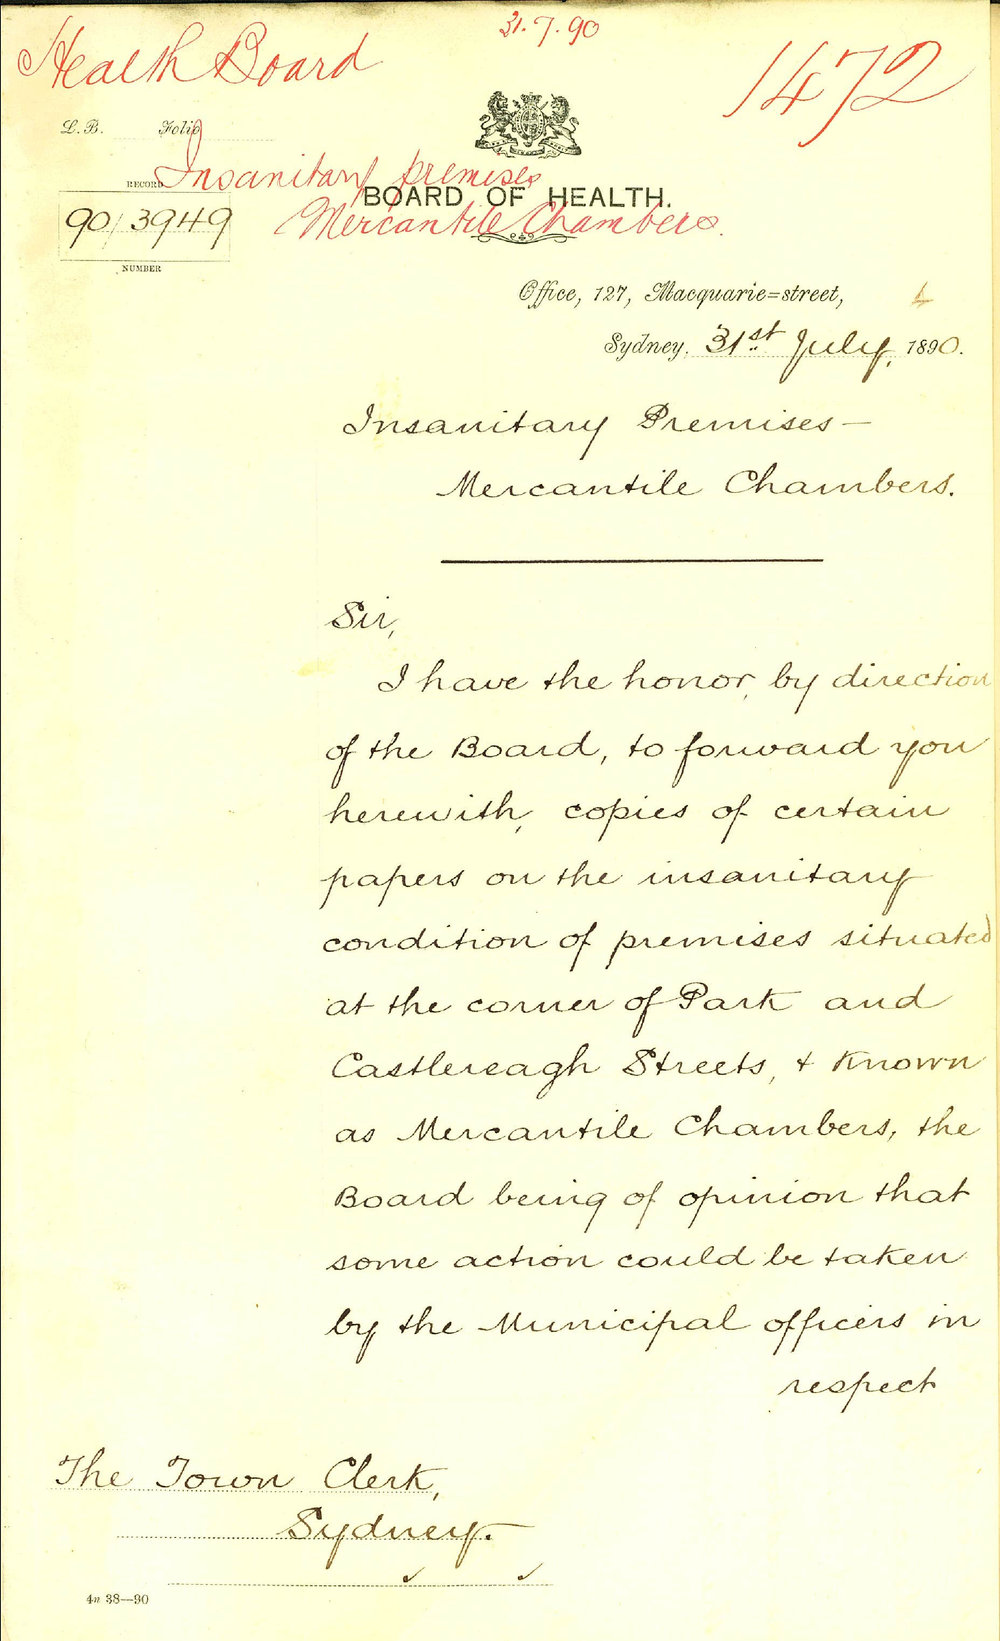 31.7.90
Health Board
1472
L.B. Folio
Insanitary premises
RECORD
BOARD OF HEALTH.
90/3949
Mercantile Chambers.
NUMBER
Office, 127, Macquarie=street,
Sydney. 31st July, 1890.
Insanitary Premises —
Mercantile Chambers.
Sir,
I have the honor, by direction
of the Board, to forward you
herewith, copies of certain
papers on the insanitary
condition of premises situated
at the corner of Park and
Castlereagh Streets, & known
as Mercantile Chambers, the
Board being of opinion that
some action could be taken
by the Municipal officers in
respect
The Town Clerk,
Sydney.
4n 38—90